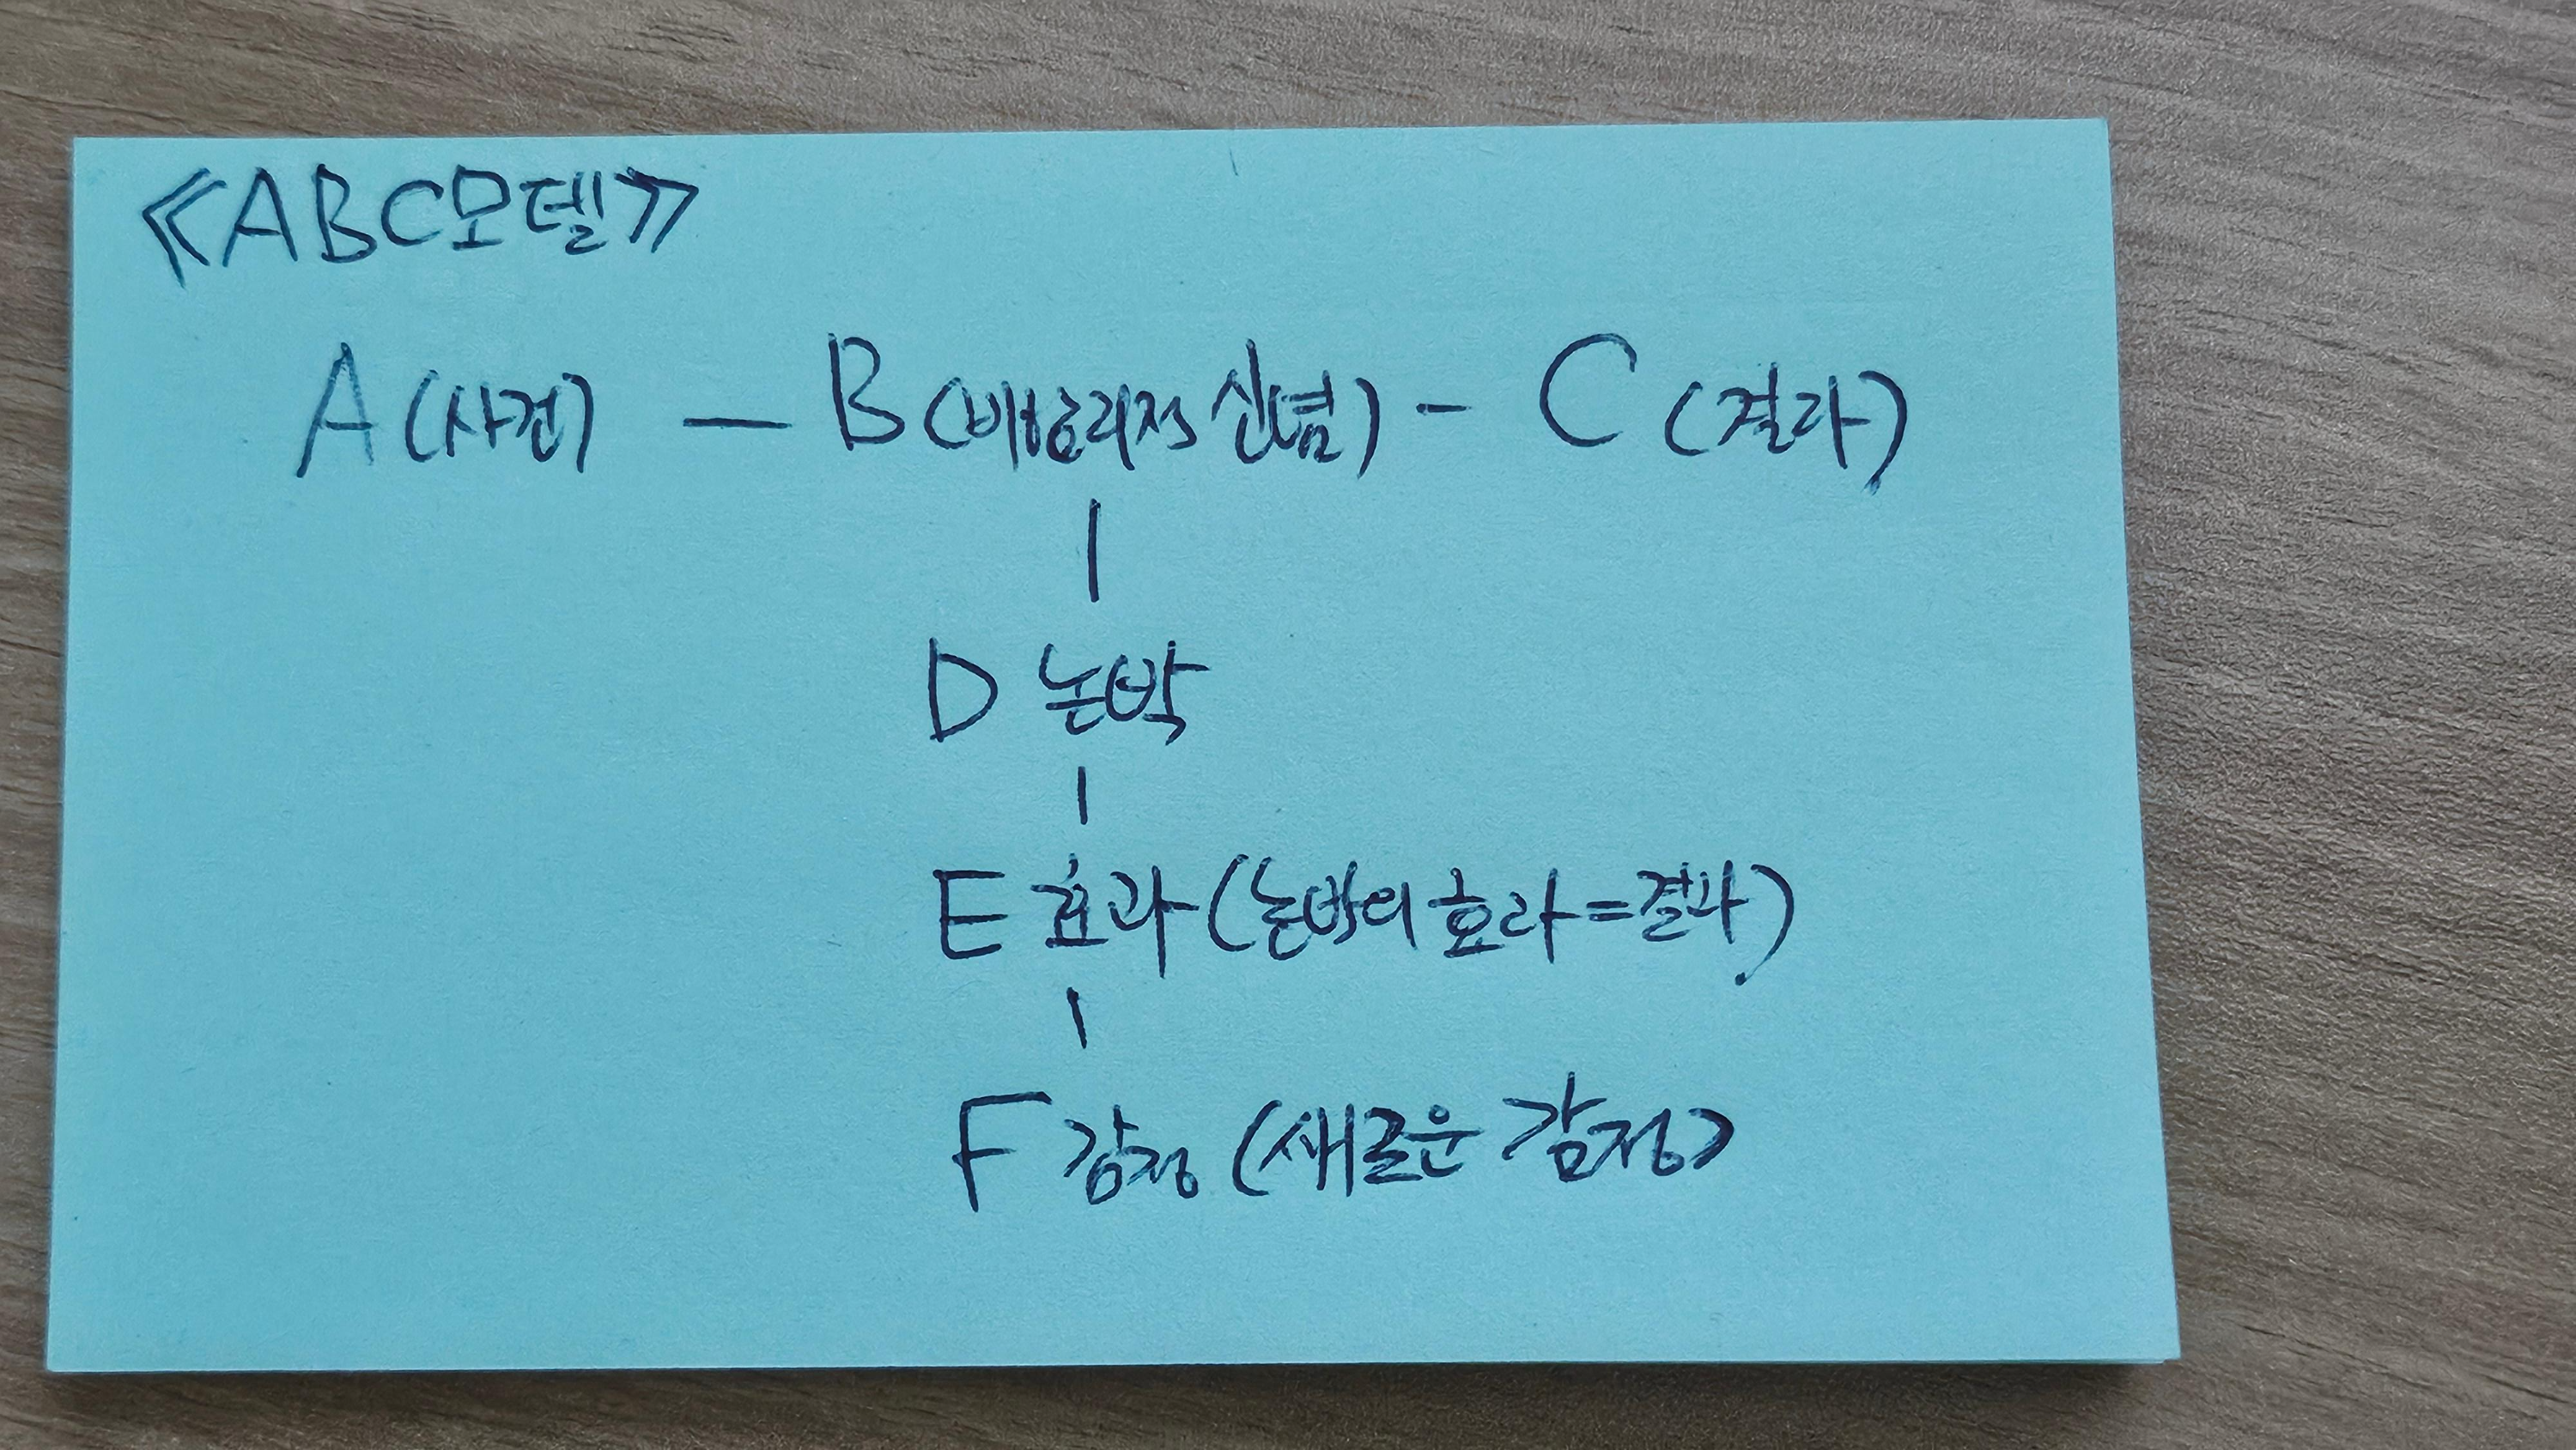 ≪ABC모델≫
A (사건) — B (비합리적 신념) - C (결과)
D 논박
E 효과 (논박의 효과 = 결과)
F 감정 (새로운 감정)